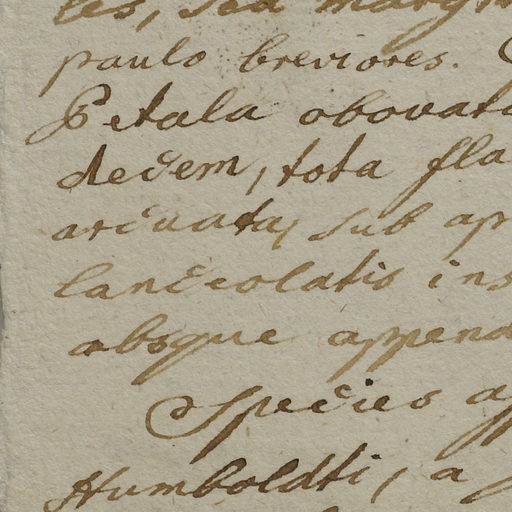 les, sed marg
paulo breviores.
Petala obovat
decem, tota fla
arcuata, sub ap
lanceolatis ins
absque append
Species af
Humboldti, a